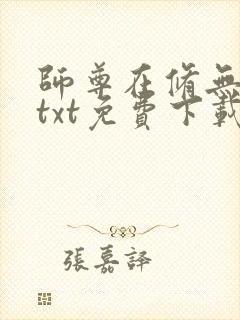 師尊在脩無
txt免費下載
張嘉譯